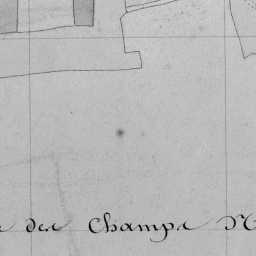 des Champs